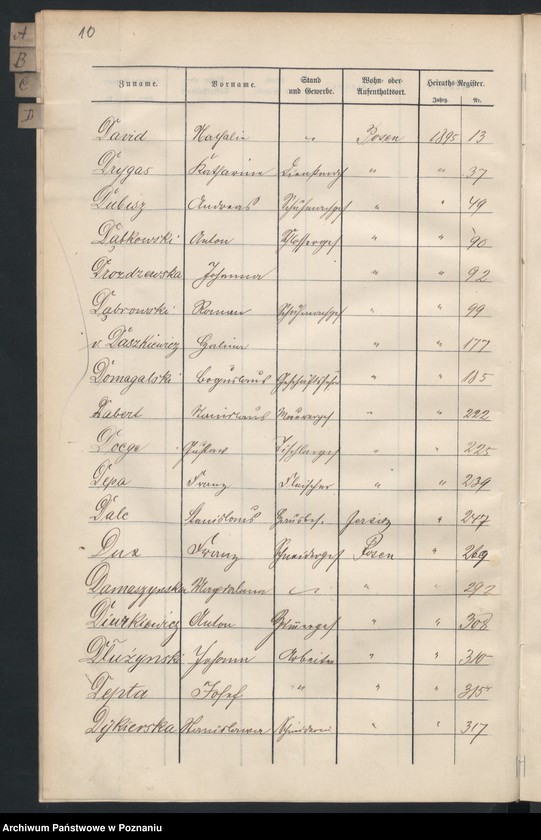 10
A
B
C
D
Zuname. Vorname. Stand und Gewerbe. Wohn- oder Aufenthaltsort. Heiraths-Register.
Jahrg. Nr.
David Nathalie " Posen 1895 13
Drygas Katharine " " 37
Dubisz Andreas Schuhmachges " " 49
Dątkowski Anton Schlosserges " " 90
Drozdzewska Johanna " " 92
Dąbrowski Roman Schuhmachges " " 99
v. Daszkiewicz Halina " " 177
Domagalski Boguslaus " " 185
Dabert Stanislaus Maurerges " " 222
Doege Gustav Tischlerges " " 225
Depa Franz Fleischer " " 239
Dalc Stanislaus Hausbes. Jersitz " 247
Dux Franz Schneiderges Posen " 269
Damaszynska Magdalena " " " 292
Diurkiewicz Anton " " 308
Dłużynski Johann Arbeiter " " 310
Depta Josef " " " 315
Dykierska Stanislawa " " 317
Archiwum Państwowe w Poznaniu